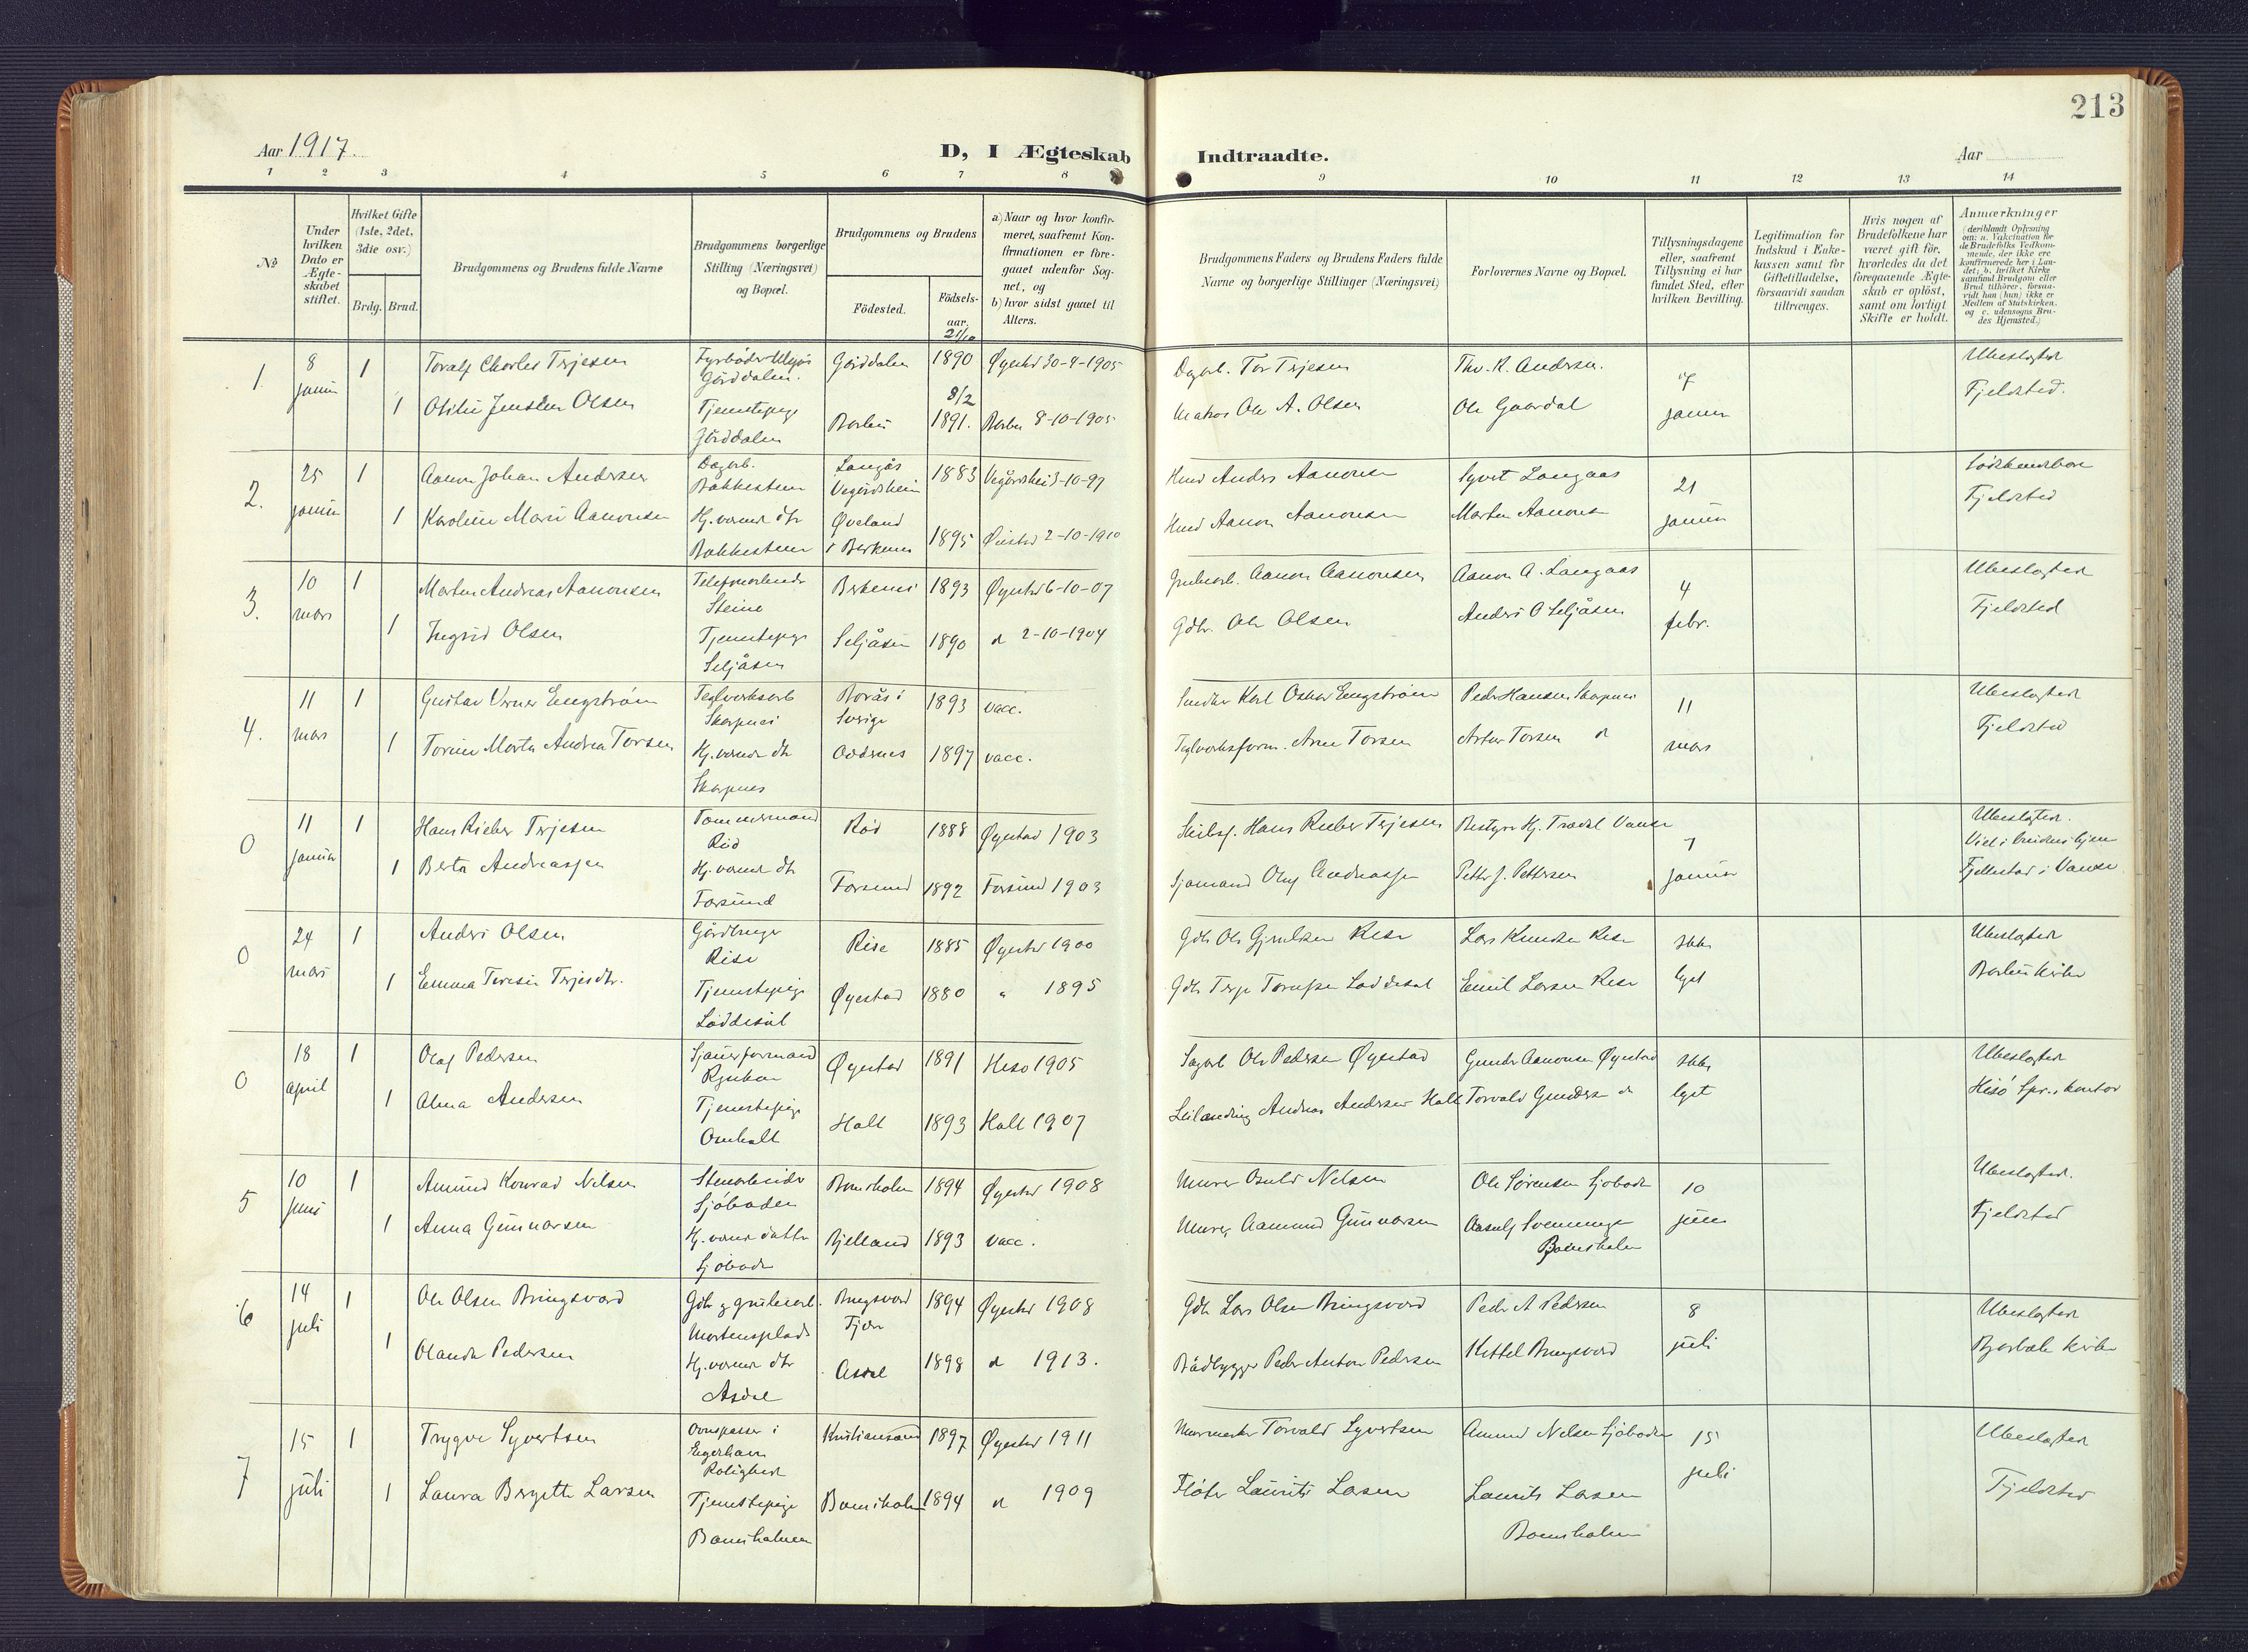 213
Aar 1917.
D, I Ægteskab Indtraadte.
Aar
1 2 3 4 5 6 7 8 9 10 11 12 13 14
№
Under hvilken Dato er Ægte-skabet stiftet.
Hvilket Gifte (1ste, 2det, 3die osv.)
Brdg. Brud.
Brudgommens og Brudens fulde Navne
Brudgommens borgerlige Stilling (Næringsvei) og Bopæl.
Brudgommens og Brudens
Fødested.
Fødsels-aar.
a) Naar og hvor konfir-meret, saafremt Kon-firmationen er fore-gaaet udenfor Sog-net, og
b) hvor sidst gaaet til Alters.
Brudgommens Faders og Brudens Faders fulde Navne og borgerlige Stillinger (Næringsvei)
Forlovernes Navne og Bopæl.
Tillysningsdagene eller, saafremt Tillysning ei har fundet Sted, efter hvilken Bevilling.
Legitimation for Indskud i Enke-kassen samt for Giftetilladelse, forsaavidt saadan tiltrænges.
Hvis nogen af Brudefolkene har været gift før, hvorledes da det foregaaende Ægte-skab er opløst, samt om lovligt Skifte er holdt.
Anmærkninger (deriblandt Oplysning om: a. Vakcination for de Brudefolks Vedkom-mende, der ikke ere konfirmerede her i Lan-det; b. hvilket Kirke samfund Brudgom eller Brud tilhører, forsaa-vidt han (hun) ikke er Medlem af Statskirken. og c. udensogns Bru-des Hjemsted.)
1. 8 januar 1 Toralf Charles Terjesen Gjøddalen 21/10 1890 Øyestad 30-4-1905 Dagarb. Tor Terjesen Thv. K. Andersen. 7 januar Ubeslægtede
1 Otilie Jensine Olsen Tjenestepige Barbu 8/2 1891. Barbu 8-10-1905 Matros Ole A. Olsen Ole Gaardal Fjeldsted.
2. 25 januar 1 Aanon Johan Andersen Dagarb. Bakkestuen Langås Vegårdsheim 1883 Vegårdshei 3-10-97 Anders Aanonsen Syvert Langaas 21 januar Sødskendebarn
1 Karoline Marie Aanonsen Hj. værende dtr Bakkestuen Øveland i Berkenes 1895 Øiestad 2-10-1910 Aanon Aanonsen Morten Aanonsen Fjeldsted
3. 10 mars 1 Morten Andreas Aanonsen Telefonarbeider Steine Berkenes 1893 Øyestad 6-10-07 Grubearb. Aanon Aanonsen Aanon A. Langaas 4 febr. Ubeslægtede
1 Ingrid Olsen Tjenestepige Seljåsen Seljåsen 1890 2-10-1904 Gdbr. Ole Olsen Anders O Seljåsen Fjeldsted
4. 11 mars 1 Gustav Verner Engstrøm Teglverksarb Skarpnes Borås i Sverige 1893 vacc. Karl Oskar Engstrøm Peder Hansen Skarpnes 11 mars Ubeslægtede
1 Marta Andrea Torsen Hj. værende dtr Skarpnes Oddernes 1897 vacc. Teglverksform. Arne Torsen Artur Torsen Fjeldsted
0 11 januar 1 Hans Rieber Terjesen Tømmermand Rød Rød 1888 Øyestad 1903 Hans Rieber Terjesen Bestyrer Hj. Trædal Vanse 7 januar Ubeslægtede. Viet i brudens hjem
1 Berta Andreassen Hj. værende dtr Farsund Farsund 1892 Farsund 1903 Sjømand Oluf Andreassen Petter J. Pettersen Fjellestad i Vanse
0 24 mars 1 Anders Olsen Gårdbruger Rise Rise 1885 Øyestad 1900 Gdbr Ole Gjerulsen Rise Lars Knudsen Rise ikke lyst Ubeslægtede
1 Emma Teresie Terjesdtr. Tjenestepige Løddesøl Øyestad 1880 " 1895 Gdbr Terje Løddesøl Emil Larsen Rise Barbu kirke
0 18 april 1 Olaf Pedersen Sjauerformand Rjukan Øyestad 1891 Hisø 1905 Sagarb Ole Pedersen Øyestad Gunder Aanonsen Øyestad ikke lyst Ubeslægtede
1 Alma Andersen Tjenestepige Omholt Holt 1893 Holt 1907 Leilænding Andreas Andersen Holt Torvald Gundersen do Hisø Spr.s kontor
5 10 juni 1 Amund Konrad Nilsen Stenarbeider Sjøboden Bomsholm 1894 Øyestad 1908 Murer Nilsen Ole Sørensen Sjøboden 10 juni Ubeslægtede.
1 Anna Gunnarsen Hj. værende datter Sjøboden Bjelland 1893 vacc. Murer Aamund Gunnarsen Aasulf Svenninge Bomsholm Fjeldsted
6 14 juli 1 Ole Olsen Bringsværd Gdbr og grubearb. Mortensplads Bringsværd Fjære 1894 Øyestad 1908 Gdbr Lars Olsen Bringsværd Peder A Pedersen 8 juli Ubeslægtede
1 Olanda Pedersen Hj. værende dtr Asdal Asdal 1898 1913. Bådbygger Peder Anton Pedersen Kittel Bringsværd Bjorbæk kirke
7 15 juli 1 Trygve Syvertsen Ovnspasser i Eydehavn Rolighed Kristiansand 1897 Øyestad 1911 Murmester Torvald Syvertsen Amund Nilsen Sjøboden 15 juli Ubeslægtede
1 Laura Bergitte Larsen Tjenestepige Bomsholmen Bomsholm 1894 1909 Fløter Laurits Larsen Laurits Larsen Bomsholm Fjeldsted